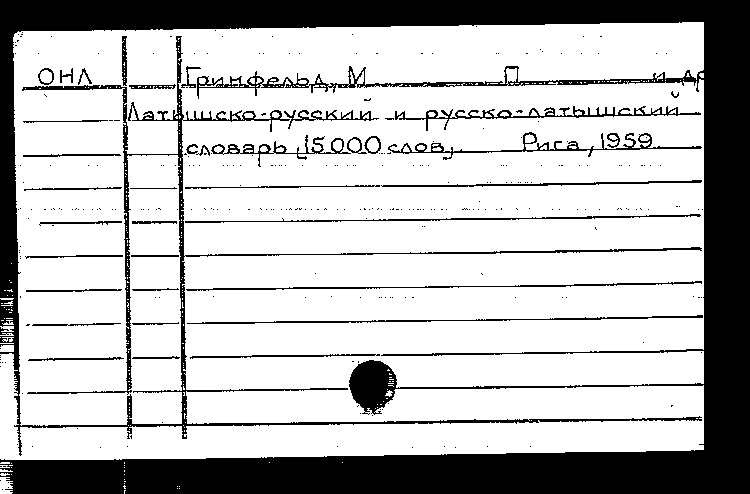 ОНЛ Гринфельд, М П и др
Латышско-русский и русско-латышский
словарь [15000 слов]. Рига, 1959